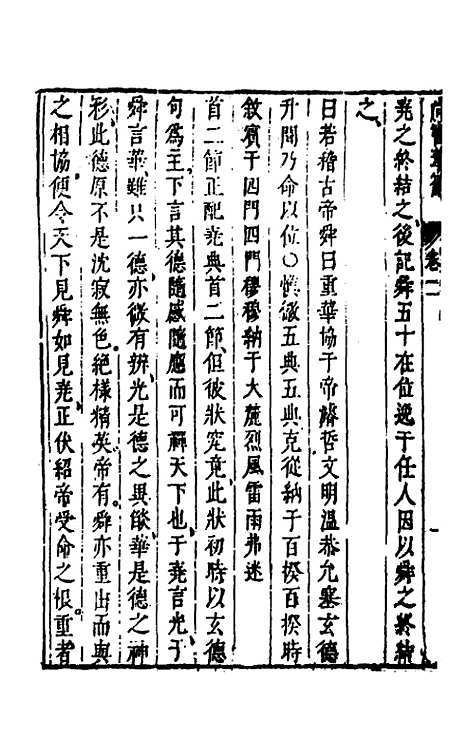 尚書葦籥 卷二
堯之終結之後記舜五十在位逸于任人因以舜之終結
之
曰若稽古帝舜曰重華協于帝濬哲文明溫恭允塞玄德
升聞乃命以位○慎徽五典五典克從納于百揆百揆時
敘賓于四門四門穆穆納于大麓烈風雷雨弗迷
首二節正配堯典首二節但彼狀究竟此狀初時以玄德
句為主下言其德隨感隨應而可禪天下也于堯言光于
舜言華雖只一德亦微有辨光是德之異燄華是德之神
彩此德原不是沈寂無色絕樣精英帝有舜亦重出而與
之相協便令天下見舜如見堯正伏紹帝受命之根重者